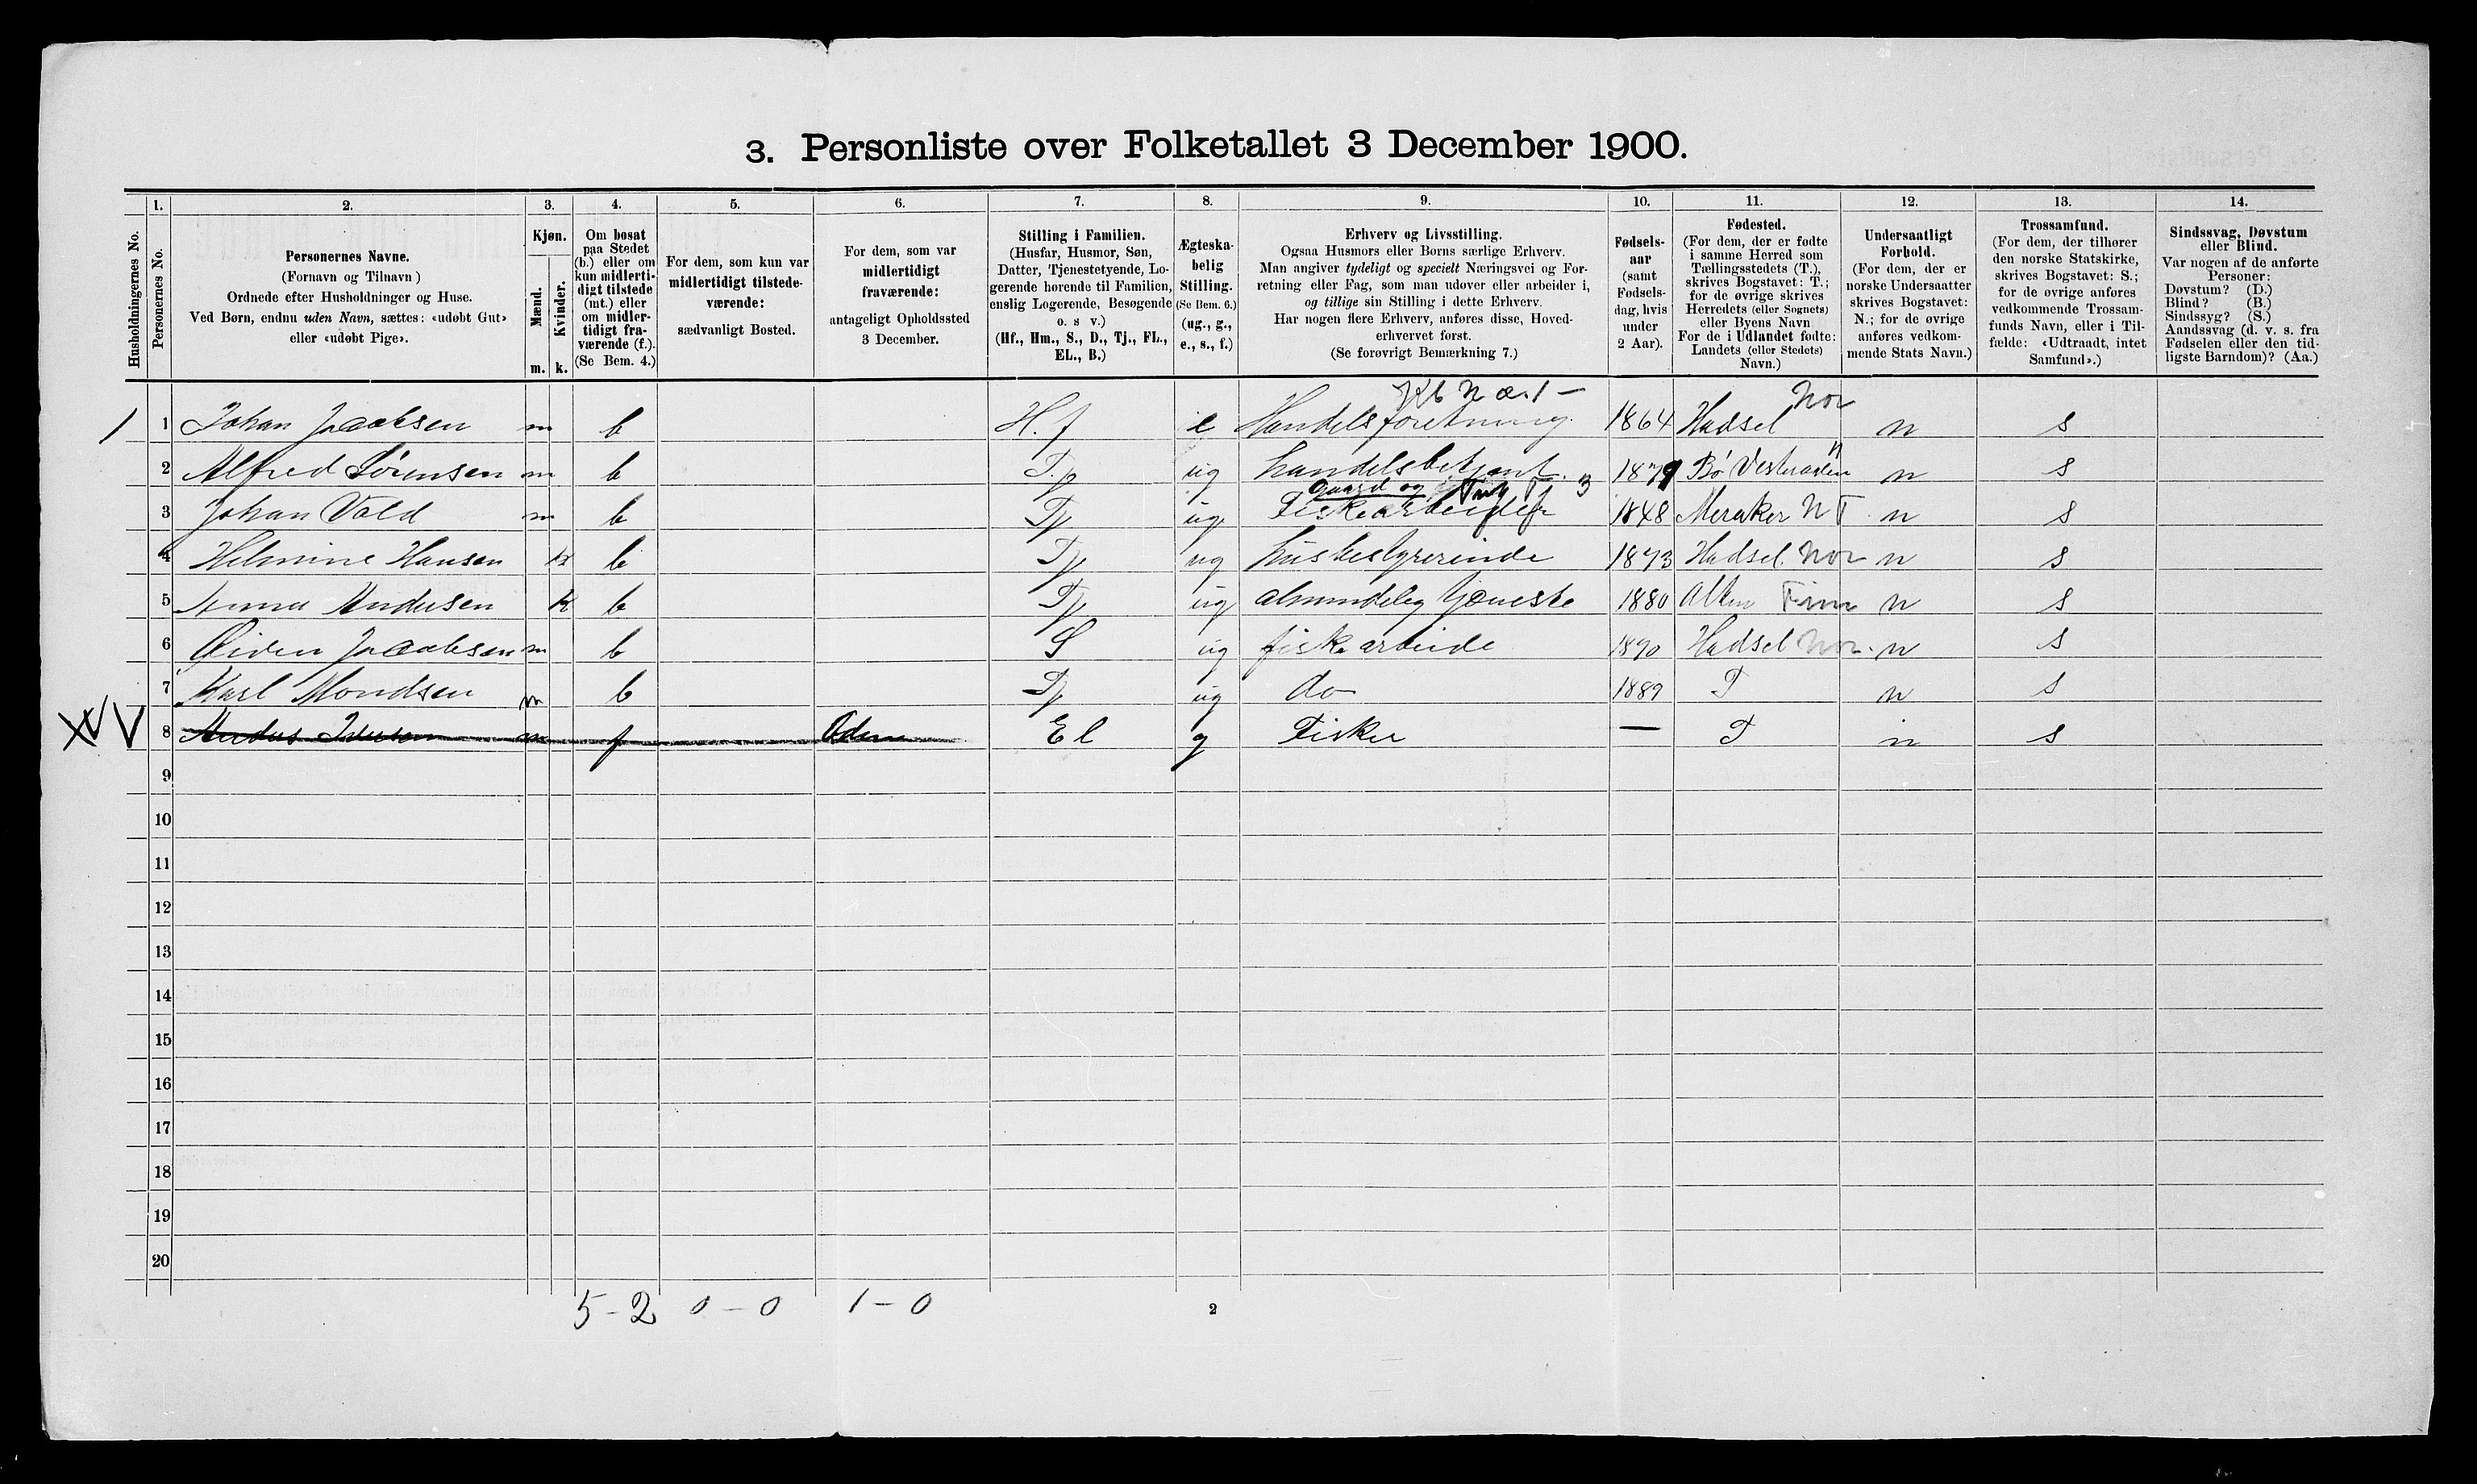 3. Personliste over Folketallet 3 December 1900.
Husholdningernes No.
1. Personernes No.
2. Personernes Navne.
(Fornavn og Tilnavn)
Ordnede efter Husholdninger og Huse.
Ved Børn, endnu uden Navn, sættes: «udøbt Gut»
eller «udøbt Pige».
3. Kjøn.
Mænd. Kvinder.
m. k.
4. Om bosat
paa Stedet
(b.) eller om
kun midlerti-
digt tilstede
(mt.) eller
om midler-
tidigt fra-
værende (f.).
(Se Bem. 4.)
5. For dem, som kun var
midlertidigt tilstede-
værende:
sædvanligt Bosted.
6. For dem, som var
midlertidigt
fraværende:
antageligt Opholdssted
3 December.
7. Stilling i Familien.
(Husfar, Husmor, Søn,
Datter, Tjenestetyende, Lo-
gerende hørende til Familien,
enslig Logerende, Besøgende
o. s v.)
(Hf., Hm., S., D., Tj., FL.,
EL., B.)
8. Ægteska-
belig
Stilling.
(Se Bem. 6.)
(ug., g.,
e., s., f.)
9. Erhverv og Livsstilling.
Ogsaa Husmors eller Børns særlige Erhverv.
Man angiver tydeligt og specielt Næringsvei og For-
retning eller Fag, som man udøver eller arbeider i,
og tillige sin Stilling i dette Erhverv.
Har nogen flere Erhverv, anføres disse, Hoved-
erhvervet først.
(Se forøvrigt Bemærkning 7.)
10. Fødsels-
aar
(samt
Fødsels-
dag, hvis
under
2 Aar).
11. Fødested.
(For dem, der er fødte
i samme Herred som
Tællingsstedets (T.),
skrives Bogstavet: T.;
for de øvrige skrives
Herredets (eller Sognets)
eller Byens Navn
For de i Udlandet fødte:
Landets (eller Stedets)
Navn.)
12. Undersaatligt
Forhold.
(For dem, der er
norske Undersaatter
skrives Bogstavet:
N.; for de øvrige
anføres vedkom-
mende Stats Navn.)
13. Trossamfund.
(For dem, der tilhører
den norske Statskirke,
skrives Bogstavet: S.;
for de øvrige anføres
vedkommende Trossam-
funds Navn, eller i Til-
fælde: «Udtraadt, intet
Samfund».)
14. Sindssvag, Døvstum
eller Blind.
Var nogen af de anførte
Personer:
Døvstum? (D.)
Blind? (B.)
Sindssyg? (S.)
Aandssvag (d. v. s. fra
Fødselen eller den tid-
ligste Barndom)? (Aa.)
1 1 Johan Jacobsen m b H.f e Handelsforretning 1864 Hadsel Nor n s
2 Alfred Sörensen m b T.j ug handelsbetjent 1879 Bö Vesteraalen N n s
3 Johan Vold m b Tj ug Gaard og Fiskearbeider 1848 Meraker N T n s
4 Helmine Hansen k b Tj ug husbestyrerinde 1873 Hadsel Nor n s
5 Anna Andersen k b Tj ug almindelig tjeneste 1880 Alten Finm n s
6 Eivin Jacobsen m b S ug fiskearbeide 1890 Hadsel Nor n s
7 Karl Mondsen m b Tj ug do 1889 T n s
8 m f El g Fisker — T n s
9
10
11
12
13
14
15
16
17
18
19
20
5 - 2 0 - 0 1 - 0
2